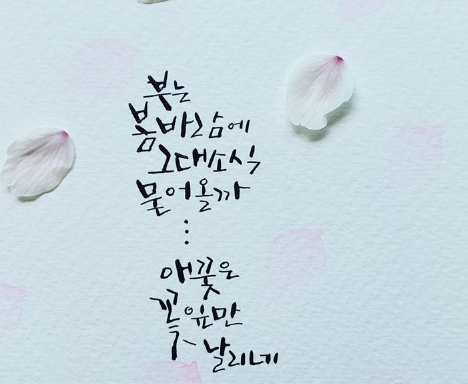 부는
봄바람에
그대소식
묻어올까
⋮
애꿎은
꽃잎만
날리네